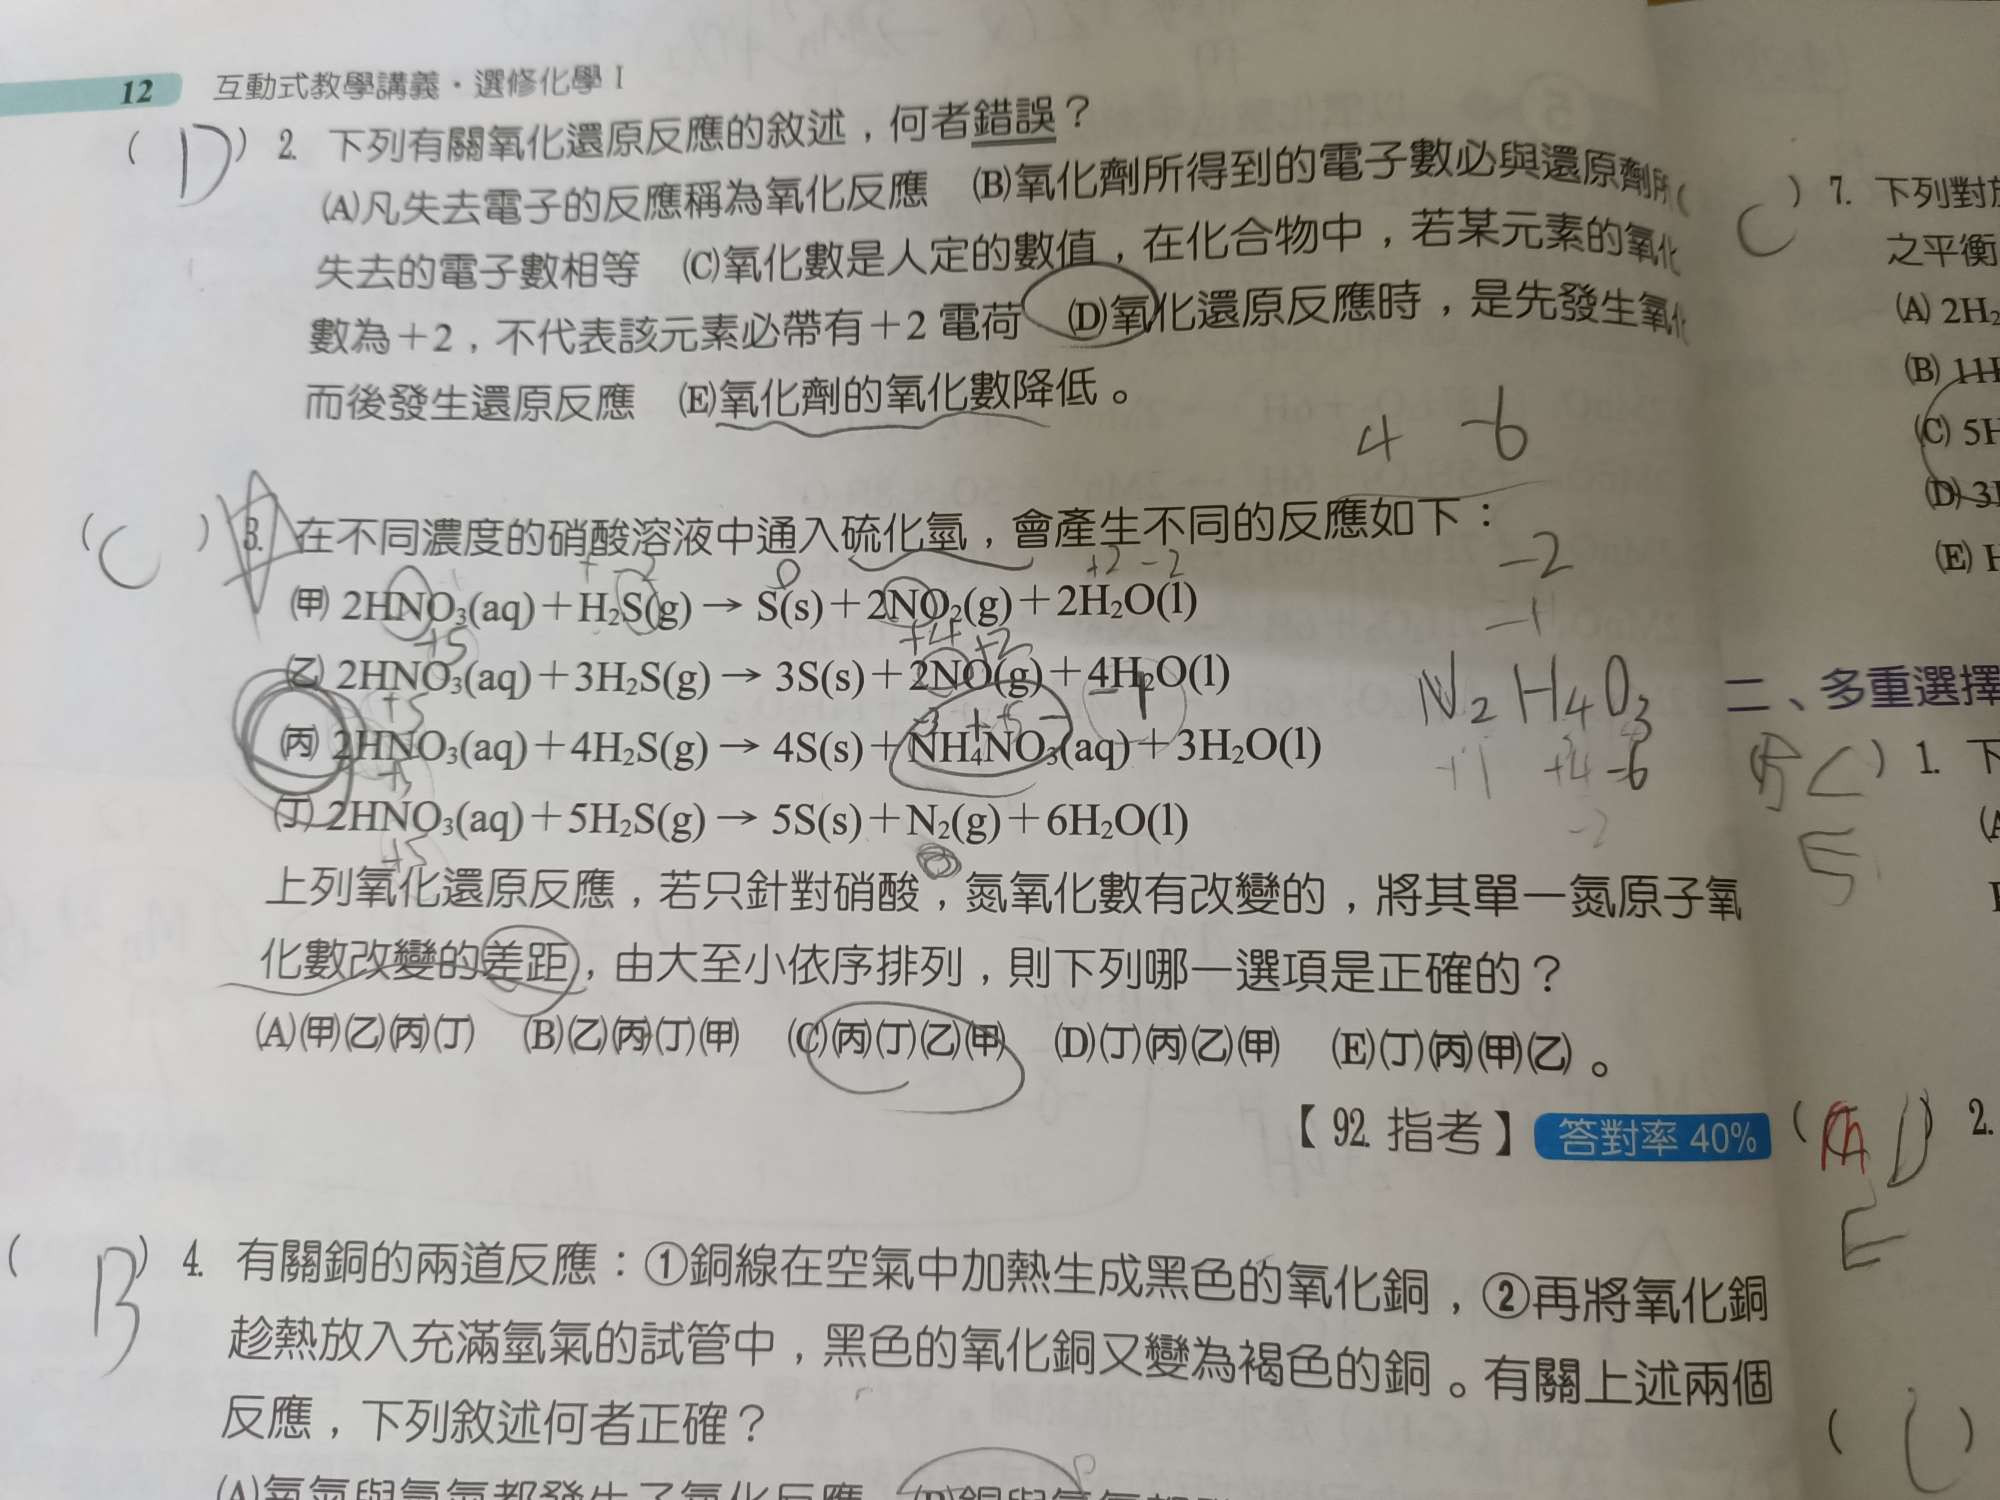 12 互動式教學講義・選修化學 I
( D ) 2. 下列有關氧化還原反應的敘述，何者錯誤？
(A)凡失去電子的反應稱為氧化反應 (B)氧化劑所得到的電子數必與還原劑所
失去的電子數相等 (C)氧化數是人定的數值，在化合物中，若某元素的氧化
數為＋2，不代表該元素必帶有＋2 電荷 (D)氧化還原反應時，是先發生氧化
而後發生還原反應 (E)氧化劑的氧化數降低。
4 -6
( C ) 3. 在不同濃度的硝酸溶液中通入硫化氫，會產生不同的反應如下：
+ -2 0 +2 -2 -2
(甲) 2HNO₃(aq)＋H₂S(g)→ S(s)＋2NO₂(g)＋2H₂O(l)
+5 +4 +2 -1
(乙) 2HNO₃(aq)＋3H₂S(g)→ 3S(s)＋2NO(g)＋4H₂O(l)
+5 -3 + +5 - -1 N₂H₄O₃
(丙) 2HNO₃(aq)＋4H₂S(g)→ 4S(s)＋NH₄NO₃(aq)＋3H₂O(l)
+5 +4 -6
(丁) 2HNO₃(aq)＋5H₂S(g)→ 5S(s)＋N₂(g)＋6H₂O(l)
+5 -2
上列氧化還原反應，若只針對硝酸，氮氧化數有改變的，將其單一氮原子氧
化數改變的差距，由大至小依序排列，則下列哪一選項是正確的？
(A)(甲)(乙)(丙)(丁) (B)(乙)(丙)(丁)(甲) (C)(丙)(丁)(乙)(甲) (D)(丁)(丙)(乙)(甲) (E)(丁)(丙)(甲)(乙)。
【92. 指考】 答對率 40%
( B ) 4. 有關銅的兩道反應：①銅線在空氣中加熱生成黑色的氧化銅，②再將氧化銅
趁熱放入充滿氫氣的試管中，黑色的氧化銅又變為褐色的銅。有關上述兩個
反應，下列敘述何者正確？
( C ) 7. 下列對於
之平衡
(A) 2H₂
(B) 11H
(C) 5H
(D) 3H
(E) H
二、多重選擇
( B C ) 1. 下
E
( D ) 2.
E
( )